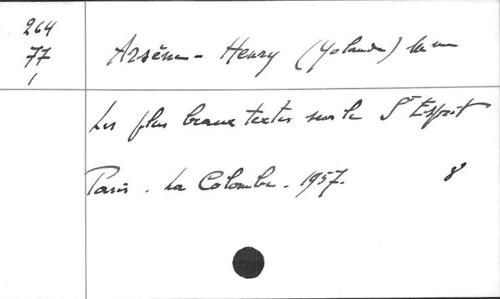 264
77
1
Arsène - Henry (Yolande) Mme
Les plus beaux textes sur le St Esprit
Paris. La Colombe. 1957. 8